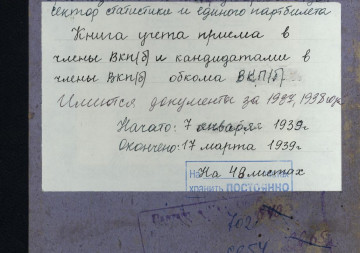 сектор статистики и единого партбилета
Книга учета приема в
члены ВКП(б) и кандидатами в
члены ВКП(б) обкома ВКП(б)
Имеются документы за 1937, 1938 год
Начато: 7 января 1939г
Окончено: 17 марта 1939г.
На 48 листах
хранить ПОСТОЯННО
702